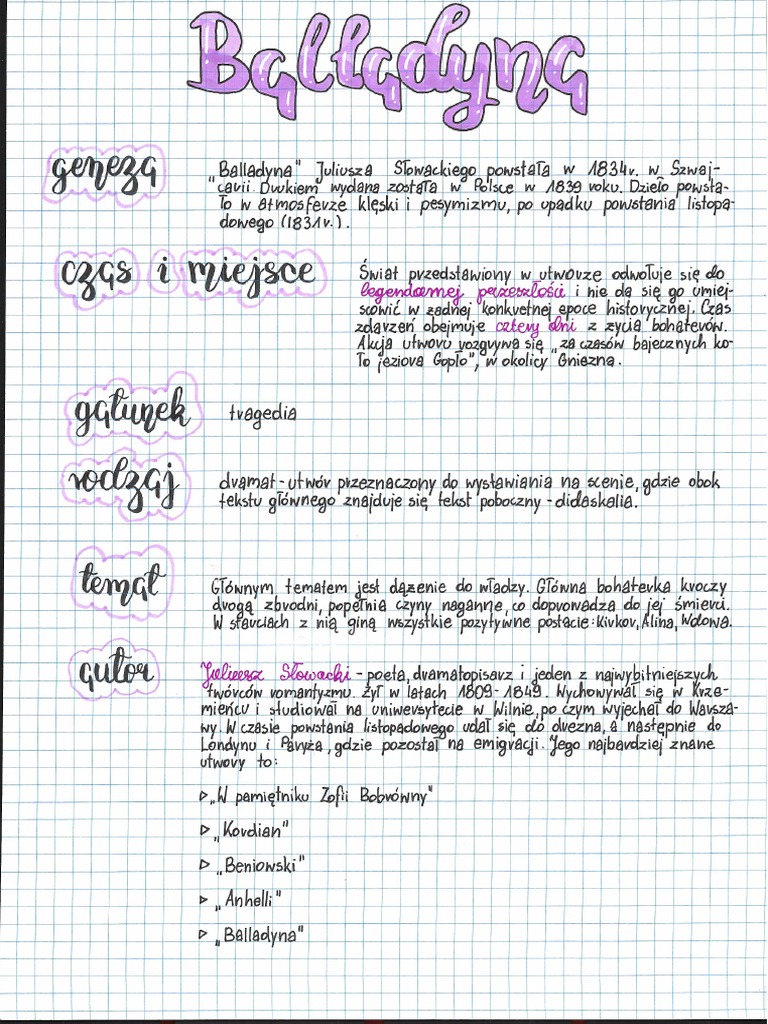 Balladyna
geneza
"Balladyna" Juliusza Słowackiego powstała w 1834r. w Szwaj-
carii. Drukiem wydana została w Polsce w 1839 roku. Dzieło powsta-
ło w atmosferze klęski i pesymizmu, po upadku powstania listopa-
dowego (1831r.).
czas i miejsce
Świat przedstawiony w utworze odwołuje się do
legendarnej przeszłości i nie da się go umiej-
scowić w żadnej konkretnej epoce historycznej. Czas
zdarzeń obejmuje cztery dni z życia bohaterów.
Akcja utworu rozgrywa się „za czasów bajecznych ko-
ło jeziora Gopło", w okolicy Gniezna.
gatunek
tragedia
rodzaj
dramat - utwór przeznaczony do wystawiania na scenie, gdzie obok
tekstu głównego znajduje się tekst poboczny - didaskalia.
temat
Głównym tematem jest dążenie do władzy. Główna bohaterka kroczy
drogą zbrodni, popełnia czyny naganne, co doprowadza do jej śmierci.
W starciach z nią giną wszystkie pozytywne postacie: Kirkor, Alina, Wdowa.
autor
Juliusz Słowacki - poeta, dramatopisarz i jeden z najwybitniejszych
twórców romantyzmu. Żył w latach 1809-1849. Wychowywał się w Krze-
mieńcu i studiował na uniwersytecie w Wilnie, po czym wyjechał do Warsza-
wy. W czasie powstania listopadowego udał się do drezna, a następnie do
Londynu i Paryża, gdzie pozostał na emigracji. Jego najbardziej znane
utwory to:
▷ „W pamiętniku Zofii Bobrówny"
▷ „Kordian"
▷ „Beniowski"
▷ „Anhelli"
▷ „Balladyna"